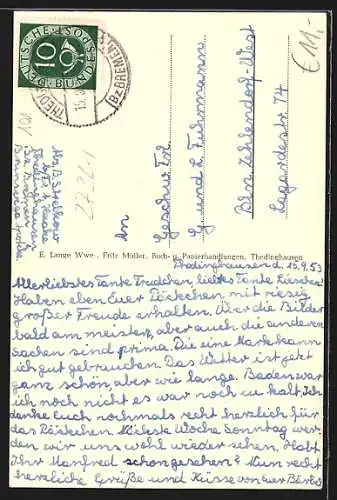 DEUTSCHE BUNDESPOST
10
THEDINGHAUSEN
(Bz. BREMEN)
€ 11,-
27321
An
Geschw. Frl.
G. und L. Fuhrmann
Bln. Zehlendorf-West
74
E. Lange Wwe., Fritz Müller, Buch- u. Papierhandlungen, Thedinghausen
Thedinghausen d. 15.9.53
Allerliebstes Tante Trudchen, liebstes Tante Lieschen!
Haben eben Euer Päckchen mit riesig
großer Freude erhalten. Über die Bilder
bald am meisten, aber auch die anderen
Sachen sind prima. Die eine Mark kann
ich gut gebrauchen. Das Wetter ist jetzt
ganz schön, aber wie lange. Baden war
ich noch nicht es war noch zu kalt. Ich
danke Euch nochmals recht herzlich für
das Päckchen. Nächste Woche Sonntag wer-
den wir uns wohl wieder sehen. Habt
Ihr Manfred schon gesehen? Nun recht
herzliche Grüße und Küsse von Euer Bärbel